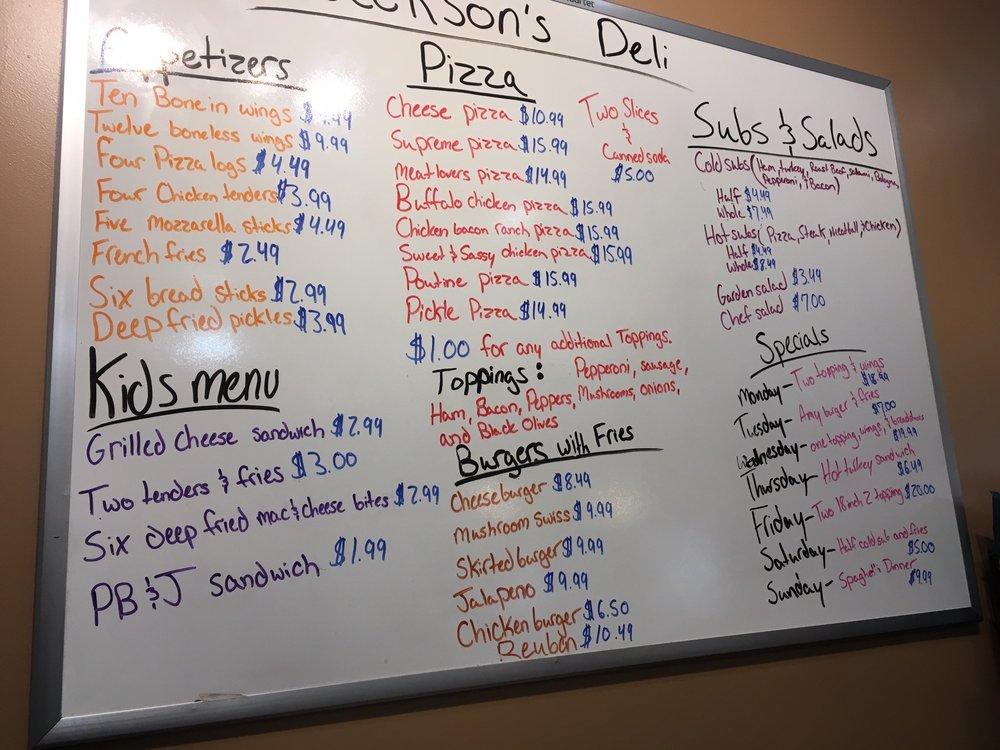 Deli
Appetizers
Ten Bone in wings
Twelve boneless wings $9.99
Four Pizza logs $4.49
Four Chicken tenders $3.99
Five mozzarella sticks $4.49
French fries $2.49
Six bread sticks $2.99
Deep fried pickles $3.99
Kids menu
Grilled cheese sandwich $2.99
Two tenders & fries $3.00
Six deep fried mac & cheese bites $2.99
PB & J sandwich $1.99
Pizza
Cheese pizza $10.99
Supreme pizza $15.99
meat lovers pizza $14.99
Buffalo chicken pizza $15.99
Chicken bacon ranch pizza $15.99
Sweet & Sassy chicken pizza $15.99
Poutine pizza $15.99
Pickle Pizza $14.99
Two Slices
&
Canned soda
$5.00
$1.00 for any additional Toppings.
Toppings: Pepperoni, sausage,
Ham, Bacon, Peppers, Mushrooms, onions,
and Black Olives
Burgers with Fries
Cheeseburger $8.49
Mushroom Swiss $9.99
Skirted burger $9.99
Jalapeno $9.99
Chicken burger $6.50
Reuben $10.49
Subs & Salads
Cold subs (Ham, turkey, Roast Beef, salami, Bologna,
Pepperoni, & Bacon)
Half $4.49
Whole $7.49
Hot subs (Pizza, Steak, Meatball, & Chicken)
Half $4.49
Whole $8.49
Garden salad $3.49
Chef salad $7.00
Specials
Monday - Two topping & wings
$18.99
Tuesday - Any burger & fries
$7.00
Wednesday - one topping, wings, & breadsticks
$19.99
Thursday - Hot turkey sandwich
$6.49
Friday - Two 18 inch 2 topping $20.00
Saturday - Half cold sub and fries
$5.00
Sunday - Spaghetti Dinner
$9.99